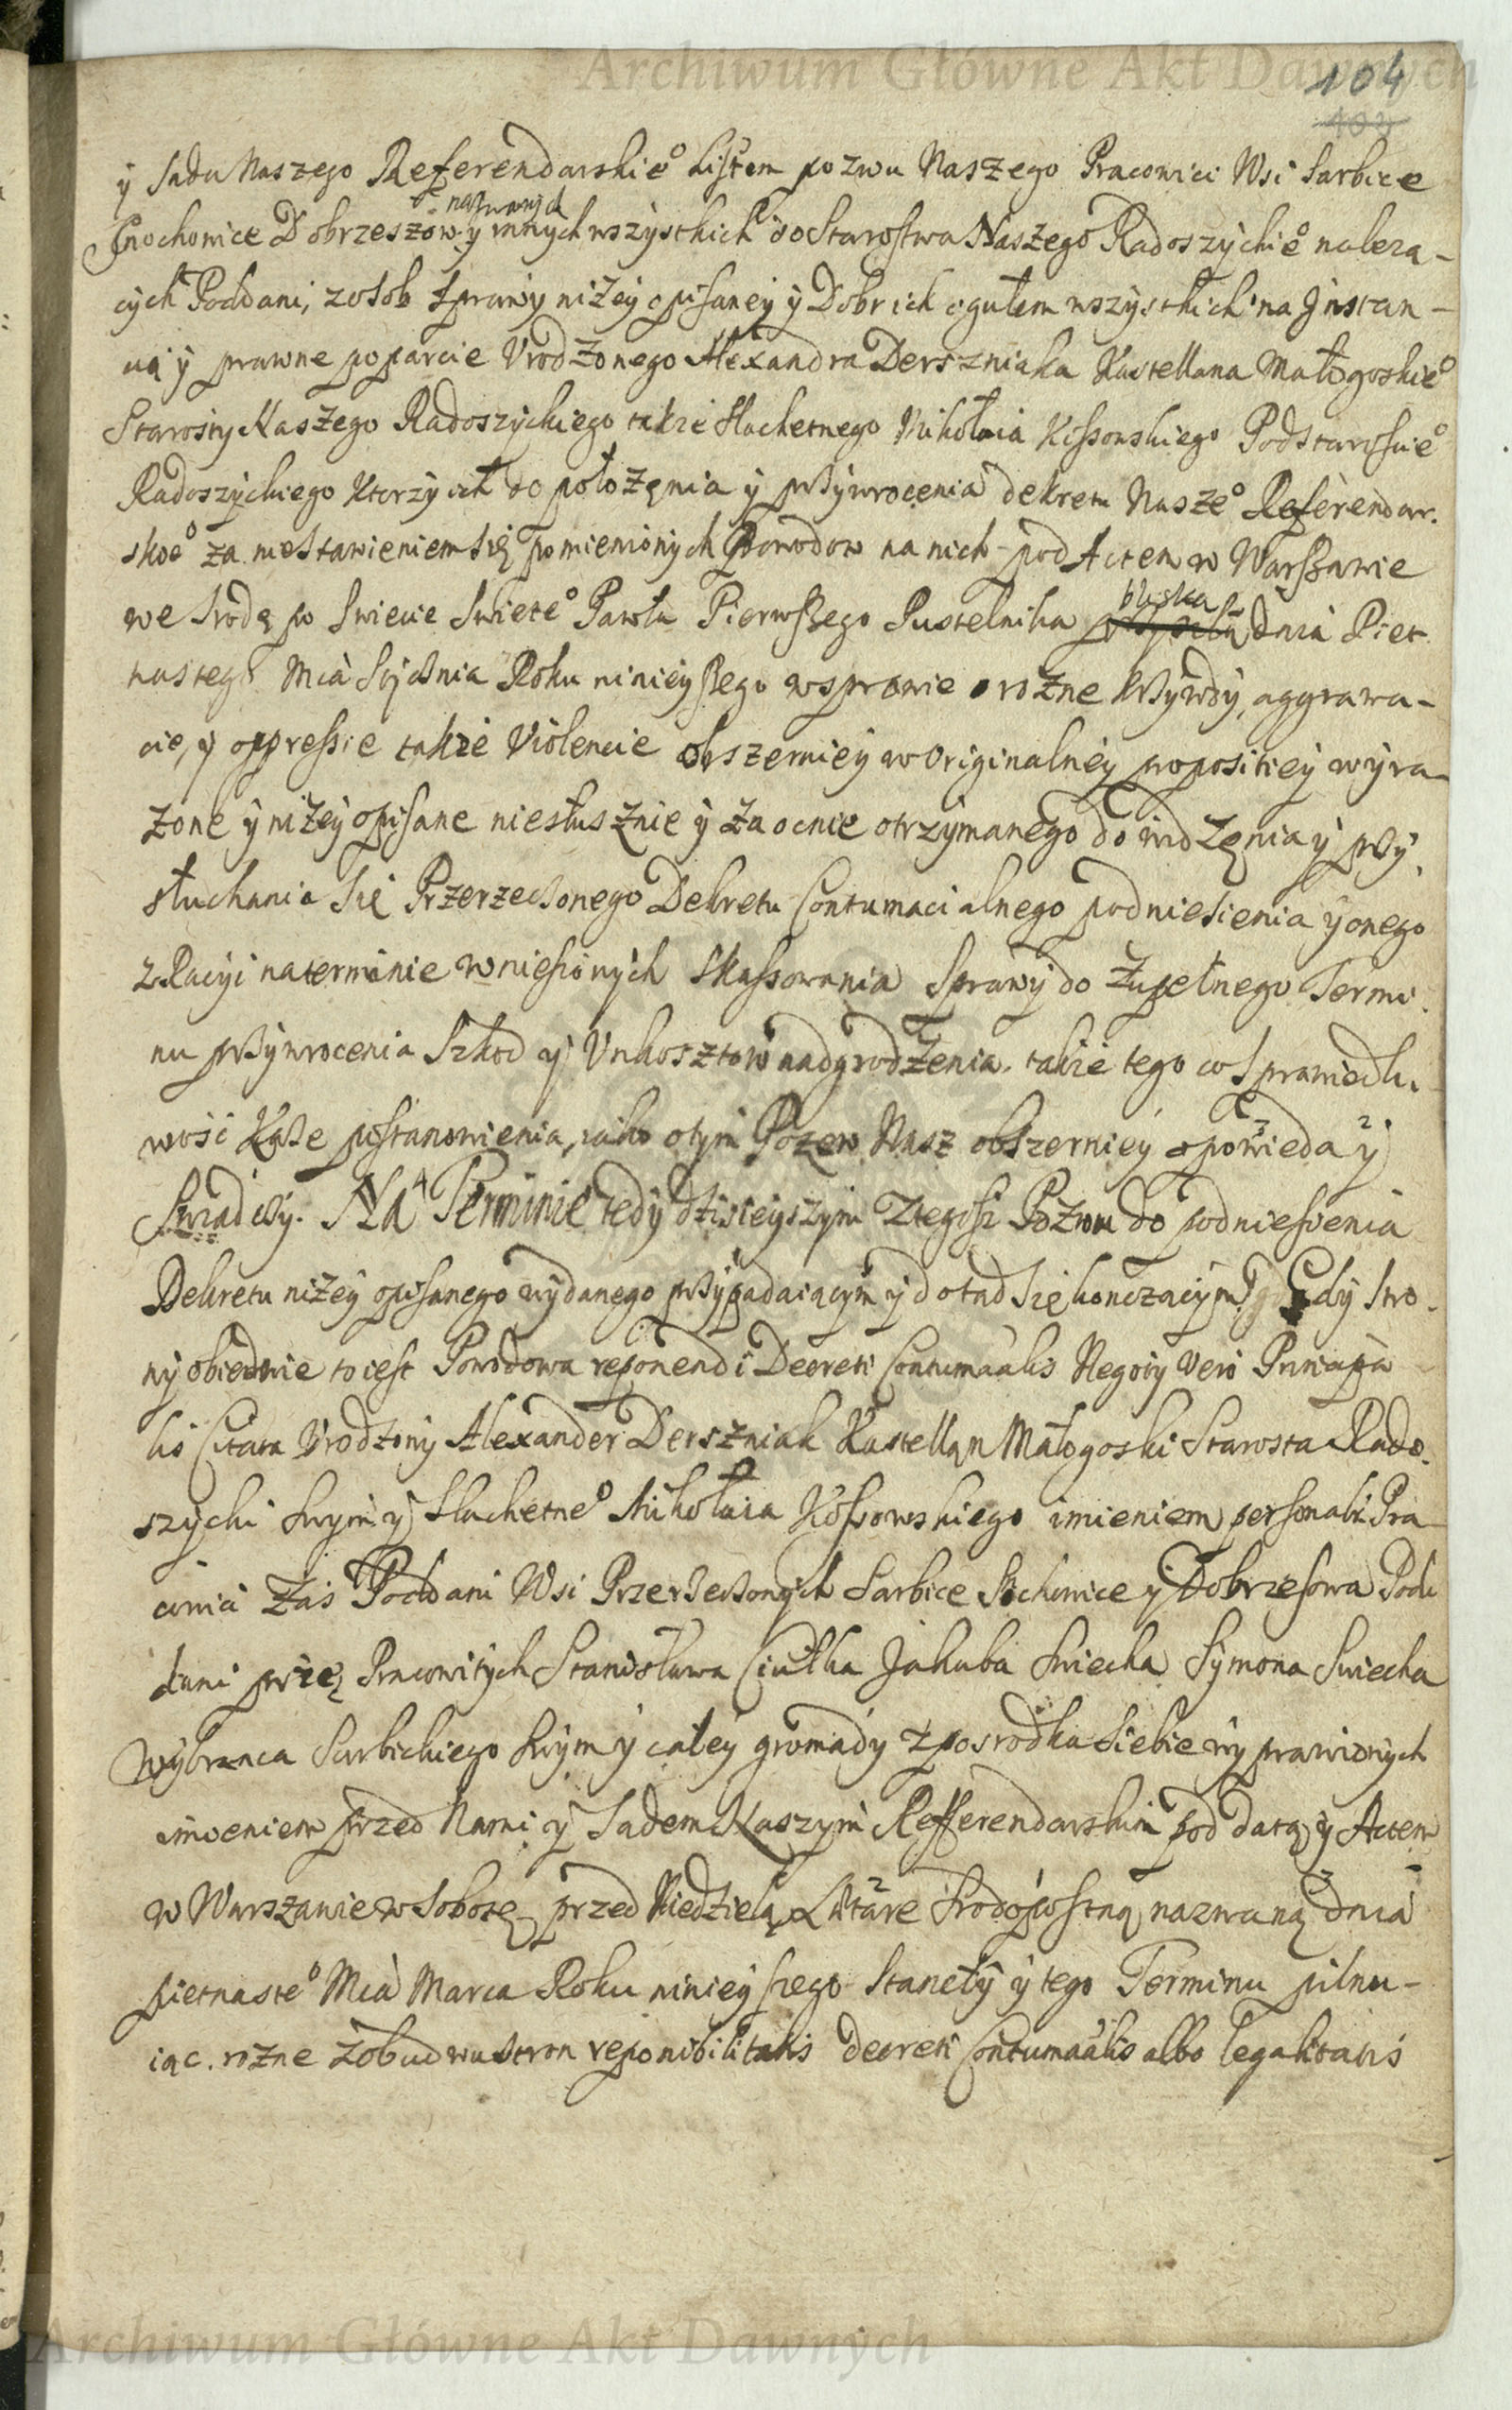 Archiwum Główne Akt Dawnych
104
103
y sadu Naszego Referendarskie° listem pozwu Naszego Pracowici Wsi Sarbice
nazwanych
Grochowice Dobrzeszow y innych wszystkich do Starostwa Naszego Radoszyckie° naleza-
cych Poddani, z osob sprawy niżey opisaney y Dobr ich ogułem wszystkich na Jnstan-
cią y prawne poparcie Vrodzonego Alexandra Derszniaka Kastellana Małogoskie°
Starosty Naszego Radoszyckiego takze Slachetnego Mikołaia Kossowskiego Podstarosciе°
Radoszyckiego Ktorzy ich do położęnia y wywrocenia dekretu Nasze° Referendar.
skoe° za niestawieniem się pomienionych Powodow na nich pod Actem w Warszawie
bliska
we srodę po Swiecie Swiete° Pawła Pierwszego Pustelnika dnia Piet
nastego Mca Stycznia Roku ninieyszego w sprawie o rożne krzywdy, aggrawa-
cie, y oppressie takze Violencie obszerniey w Originalney propositiey wyra-
zone y niżey opisane niesłusznie y zaocnie otrzymanego do widzęnia y wy.
słuchania się Przerzeczonego Dekretu Contumacialnego podniesienia y onego
z Racyi na terminie wniesionych skassowania sprawy do zupełnego Termi.
nu wywrocenia Szkod y Vnkosztow nadgrodzenia. takze tego co sprawiedli.
wość Każe postanowienia, iako o tym Pozew Nasz obszerniey opowieda y
Swiadczy. Na Terminie tedy dzisieyszym z tegosz Pozwu do podniesienia
Dekretu niżey opisanego wydanego wypadaiącym y dotąd się konczacym Gdy stro.
ny obiedwie to iest Powodowa reponendi Decreti Contumacialis Negoty Vero Principa
lis Citata Vrodzony Alexander Derszniak Kastellan Małogoski Starosta Rado.
szycki swym y Slachetne° Mikołaia Kossowskiego imieniem personalr. Pra
cowici zaś Poddani Wsi Przerzeczonych Sarbice Sochonice y Dobrzesowa Podd
dani przez Pracowitych Stanisława Ciułka Jakuba Swiecha Symona Swiecha
wybranca Sarbickiego swym y całey gromady z posrodka siebie wyprawionych
imieniem przed Nami y Sadem Naszym Refferendarskim pod datą y Actem
w Warszawie w Sobotę przed Niedzielą Lætare srodopostną nazwaną dnia
pietnaste° Mca Marca Roku ninieyszego staneły y tego Terminu pilnu-
iąc. rożne z obudwu stron reponibilitatis decreti Contumacialis albo legalitatis
Archiwum Główne Akt Dawnych